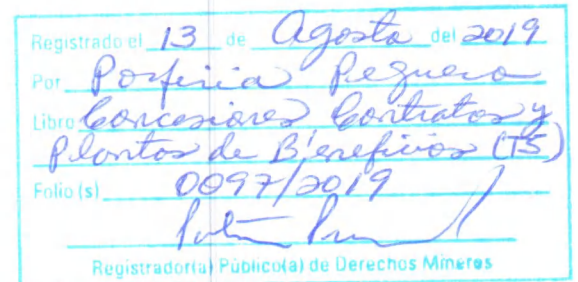 Registrado el 13 de Agosto del 2019
Por Porfiria Peguero
Libro Concesiones Contratos y
Plantas de Beneficios (T5)
Folio (s) 0097/2019
Registrador(a) Público(a) de Derechos Mineros